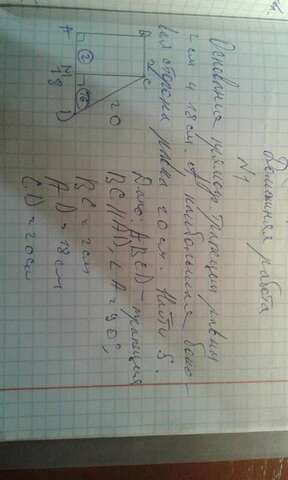 Домашняя работа
N1
Основания прямоуг. трапеции равны
2 см и 18 см. А наибольшая боко-
вая сторона равна 20 см. Найти S.
Дано: ABCD - трапеция
BC || AD, ∠A = 90°,
BC = 2 см
AD = 18 см
CD = 20 см
A
B
2
2
C
N
16
20
18
D